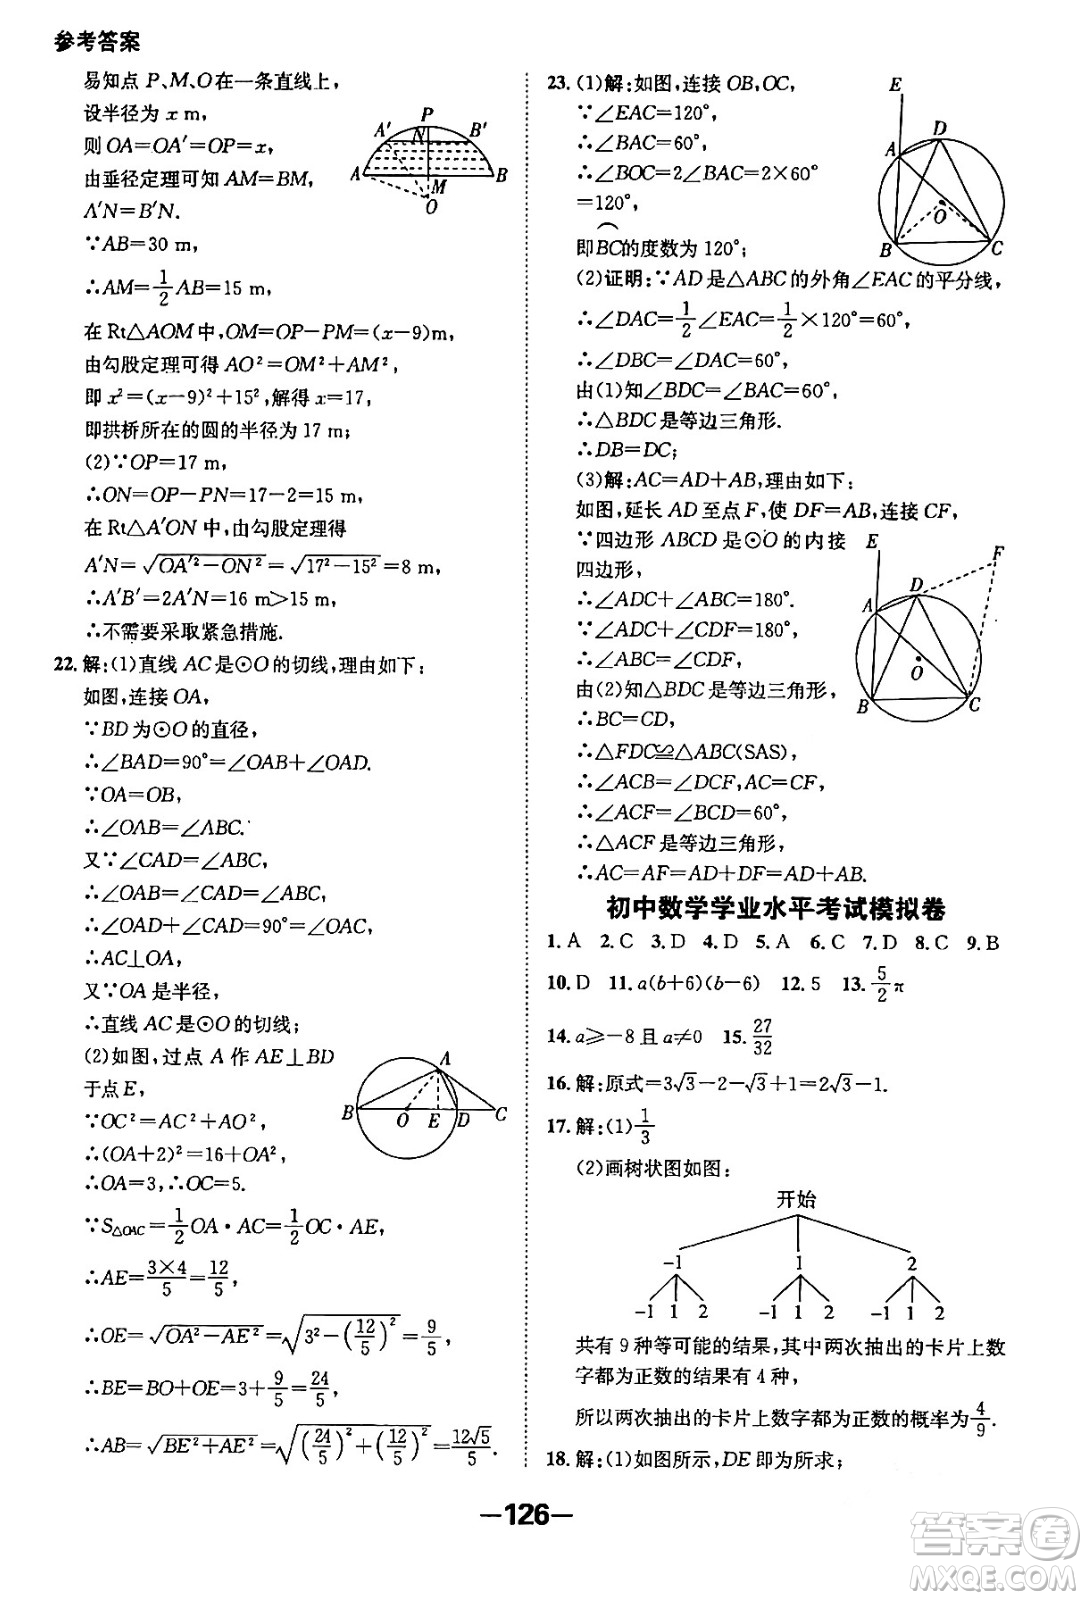 参考答案
易知点 P、M、O在一条直线上,
设半径为 x m,
则 OA=OA′=OP=x,
由垂径定理可知 AM=BM,
A′N=B′N.
∵AB=30 m,
∴AM=1/2 AB=15 m,
在 Rt△AOM 中,OM=OP−PM=(x−9)m,
由勾股定理可得 AO²=OM²+AM²,
即 x²=(x−9)²+15²,解得 x=17,
即拱桥所在的圆的半径为 17 m;
(2)∵OP=17 m,
∴ON=OP−PN=17−2=15 m,
在 Rt△A′ON 中,由勾股定理得
A′N=√(OA′²−ON²)=√(17²−15²)=8 m,
∴A′B′=2A′N=16 m>15 m,
∴不需要采取紧急措施.
22.解:(1)直线 AC是⊙O的切线,理由如下:
如图,连接 OA,
∵BD为⊙O的直径,
∴∠BAD=90°=∠OAB+∠OAD.
∵OA=OB,
∴∠OAB=∠ABC.
又∵∠CAD=∠ABC,
∴∠OAB=∠CAD,
∴∠CAD+∠OAD=90°=∠OAC,
∴AC⊥OA,
又∵OA 是半径,
∴直线 AC是⊙O的切线;
(2)如图,过点 A 作 AE⊥BD
于点 E,
∵OC²=AC²+AO²,
∴(OA+2)²=16+OA²,
∴OA=3,∴OC=5.
∵S△OAC=1/2 OA·AC=1/2 OC·AE,
∴AE=3×4/5=12/5,
∴OE=√(OA²−AE²)=√(3²−(12/5)²)=9/5,
∴BE=BO+OE=3+9/5=24/5,
∴AB=√(BE²+AE²)=√((24/5)²+(12/5)²)=12√5/5.
P
A′ N B′
A M B
O
A
B O E D C
23.(1)解:如图,连接 OB,OC,
∵∠EAC=120°,
∴∠BAC=60°,
∴∠BOC=2∠BAC=2×60°
=120°,
即⌒BC的度数为 120°;
(2)证明:∵AD是△ABC的外角∠EAC的平分线,
∴∠DAC=1/2∠EAC=1/2×120°=60°,
∴∠DBC=∠DAC=60°,
由(1)知∠BDC=∠BAC=60°,
∴△BDC是等边三角形.
∴DB=DC;
(3)解:AC=AD+AB,理由如下:
如图,延长 AD至点 F,使 DF=AB,连接 CF,
∵四边形 ABCD 是⊙O 的内接
四边形,
∴∠ADC+∠ABC=180°.
∵∠ADC+∠CDF=180°,
∴∠ABC=∠CDF.
由(2)知△BDC是等边三角形,
∴BC=CD,
∴△FDC≌△ABC(SAS)
∴∠ACB=∠DCF,AC=CF,
∴∠ACF=∠BCD=60°,
∴△ACF是等边三角形,
∴AC=AF=AD+DF=AD+AB.
E
D
A
O
B C
E
F
D
A
O
B C
初中数学学业水平考试模拟卷
1. A 2. C 3. D 4. D 5. A 6. C 7. D 8. C 9. B
10. D 11. a(b+6)(b−6) 12. 5 13. 5/2 π
14. a≥−8 且 a≠0 15. 27/32
16.解:原式=3√3−2−√3+1=2√3−1.
17.解:(1)1/3
(2)画树状图如图:
开始
−1 1 2
−1 1 2 −1 1 2 −1 1 2
共有 9 种等可能的结果,其中两次抽出的卡片上数
字都为正数的结果有 4 种,
所以两次抽出的卡片上数字都为正数的概率为4/9.
18.解:(1)如图所示,DE 即为所求;
−126−
答案圈
MXQE.COM